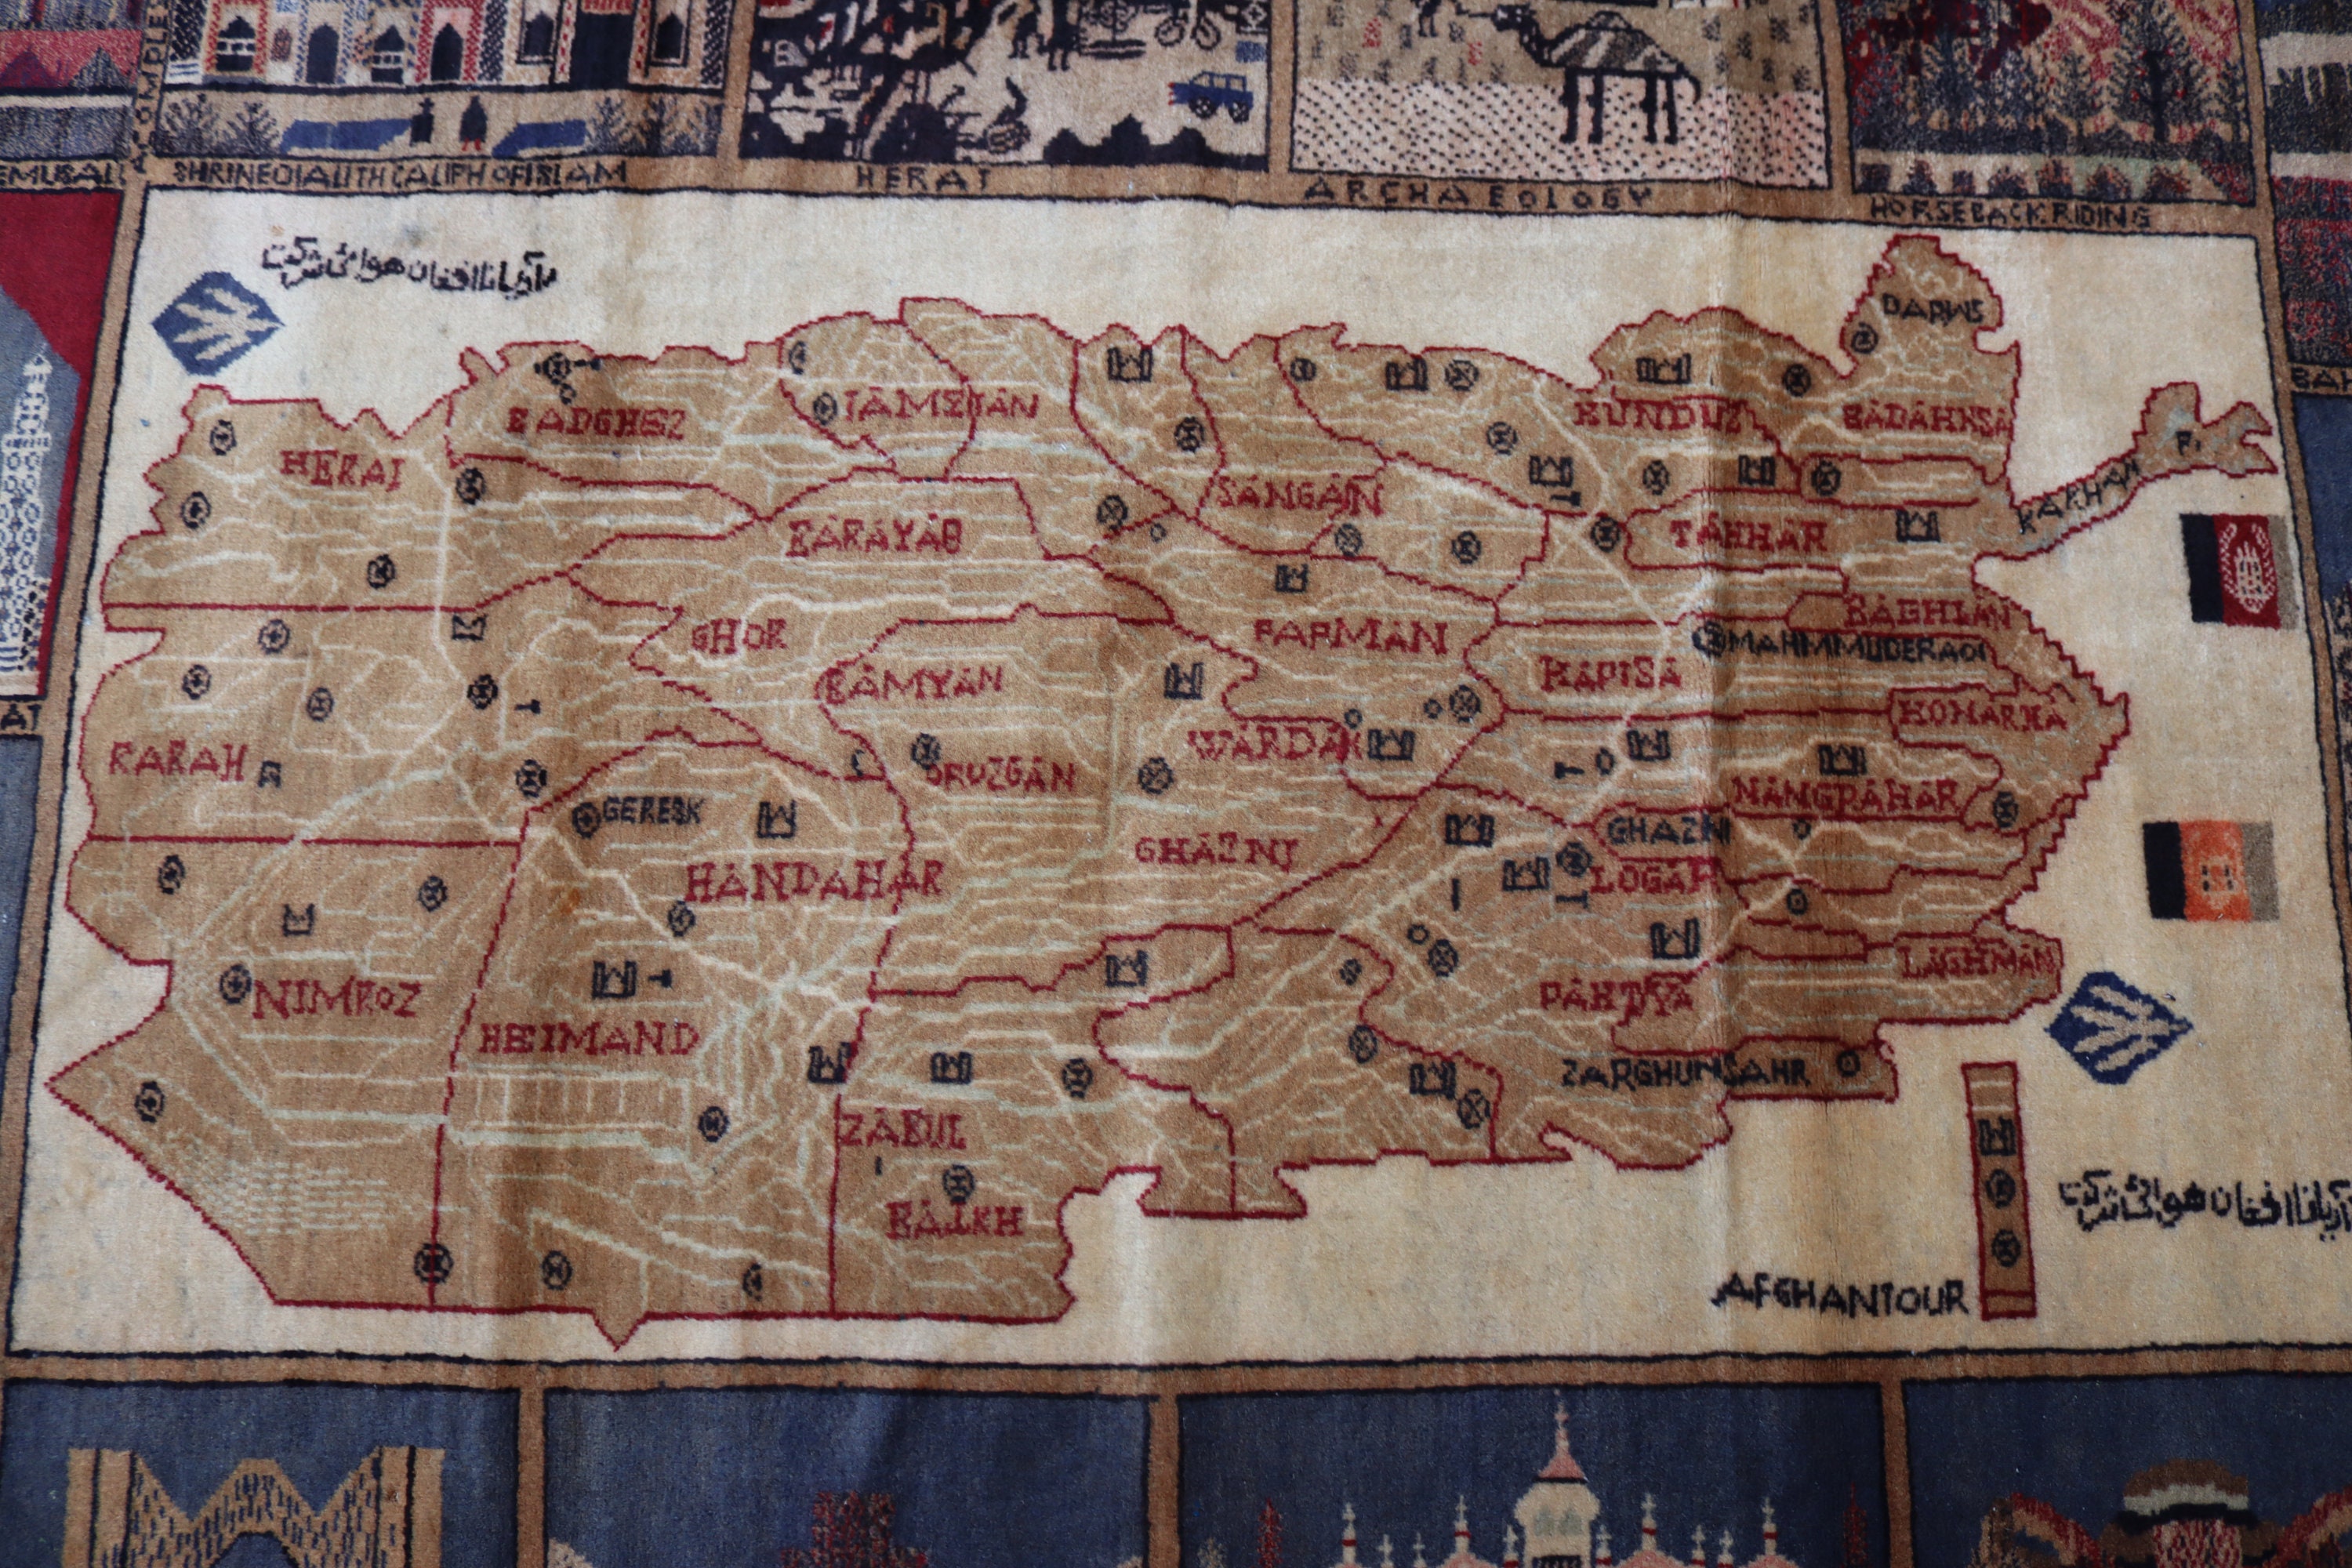 SHRINEOIALITHCALIPHOFISLAM
HERAT
ARCHAEOLOGY
HORSEBACKRIDING
آریانا افغان هوائی شرکت
DARWS
JAMZJAN
BADGHEZ
KUNDUZ
BADAHKSA
HERAT
SANGAIN
TAHHAR
BARAYAB
BAGHLAN
GHOR
PARMAN
MAHMMUDERAOI
BAMYAN
KAPISA
HOHARHA
RARAH
WARDAK
ORUZGAN
NANGRAHAR
GERESK
GHAZNI
GHAZNI
HANDAHAR
LOGAR
NIMROZ
LAGHMAN
PAHTYA
HEIMAND
ZARGHUNSAHR
ZABUL
BALKH
آریانا افغان هوائی شرکت
AFGHANTOUR